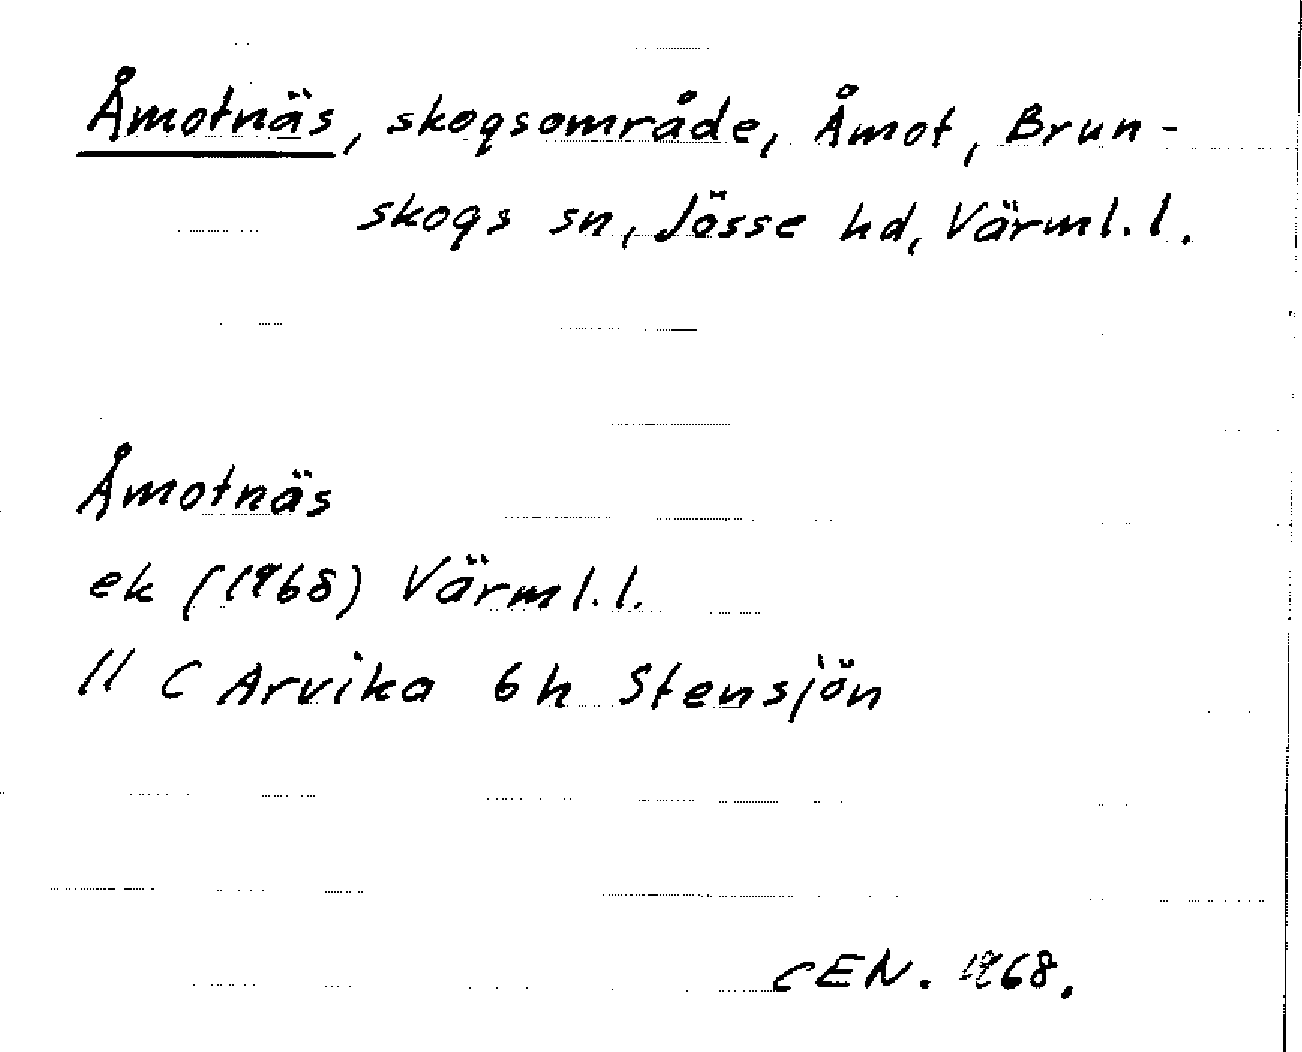 Åmotnäs, skogsområde, Åmot, Brun-
skogs sn, Jösse hd, Värml. l.
Åmotnäs
ek (1968) Värml. l.
11 C Arvika 6h Stensjön
CEN. 1968.